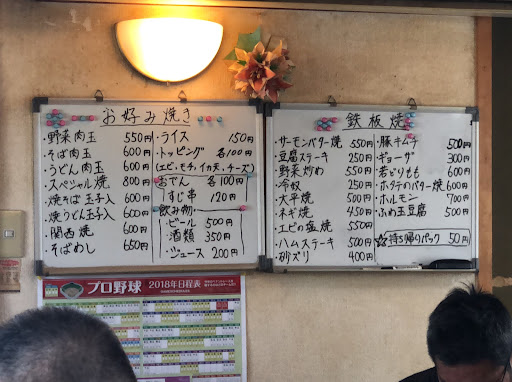 お好み焼き
・野菜肉玉 550円
・そば肉玉 600円
・うどん肉玉 600円
・スペシャル焼 800円
・焼そば玉子入 600円
・焼うどん玉子入 600円
・関西焼 600円
・そばめし 650円
・ライス 150円
・トッピング 各100円
(エビ、モチ、イカ天、チーズ)
・おでん 各100円
すじ串 120円
・飲み物
・ビール 500円
・酒類 350円
・ジュース 200円
鉄板焼
・サーモンバター焼 550円
・豆腐ステーキ 250円
・野菜炒め 550円
・冷奴 250円
・大平焼 500円
・ネギ焼 450円
・エビの塩焼 550円
・ハムステーキ 500円
・砂ズリ 400円
・豚キムチ 500円
・ギョーザ 300円
・若どりもも 600円
・ホタテのバター焼 600円
・ホルモン 700円
・ふわ玉豆腐 500円
☆持ち帰りパック 50円
プロ野球 2018年日程表